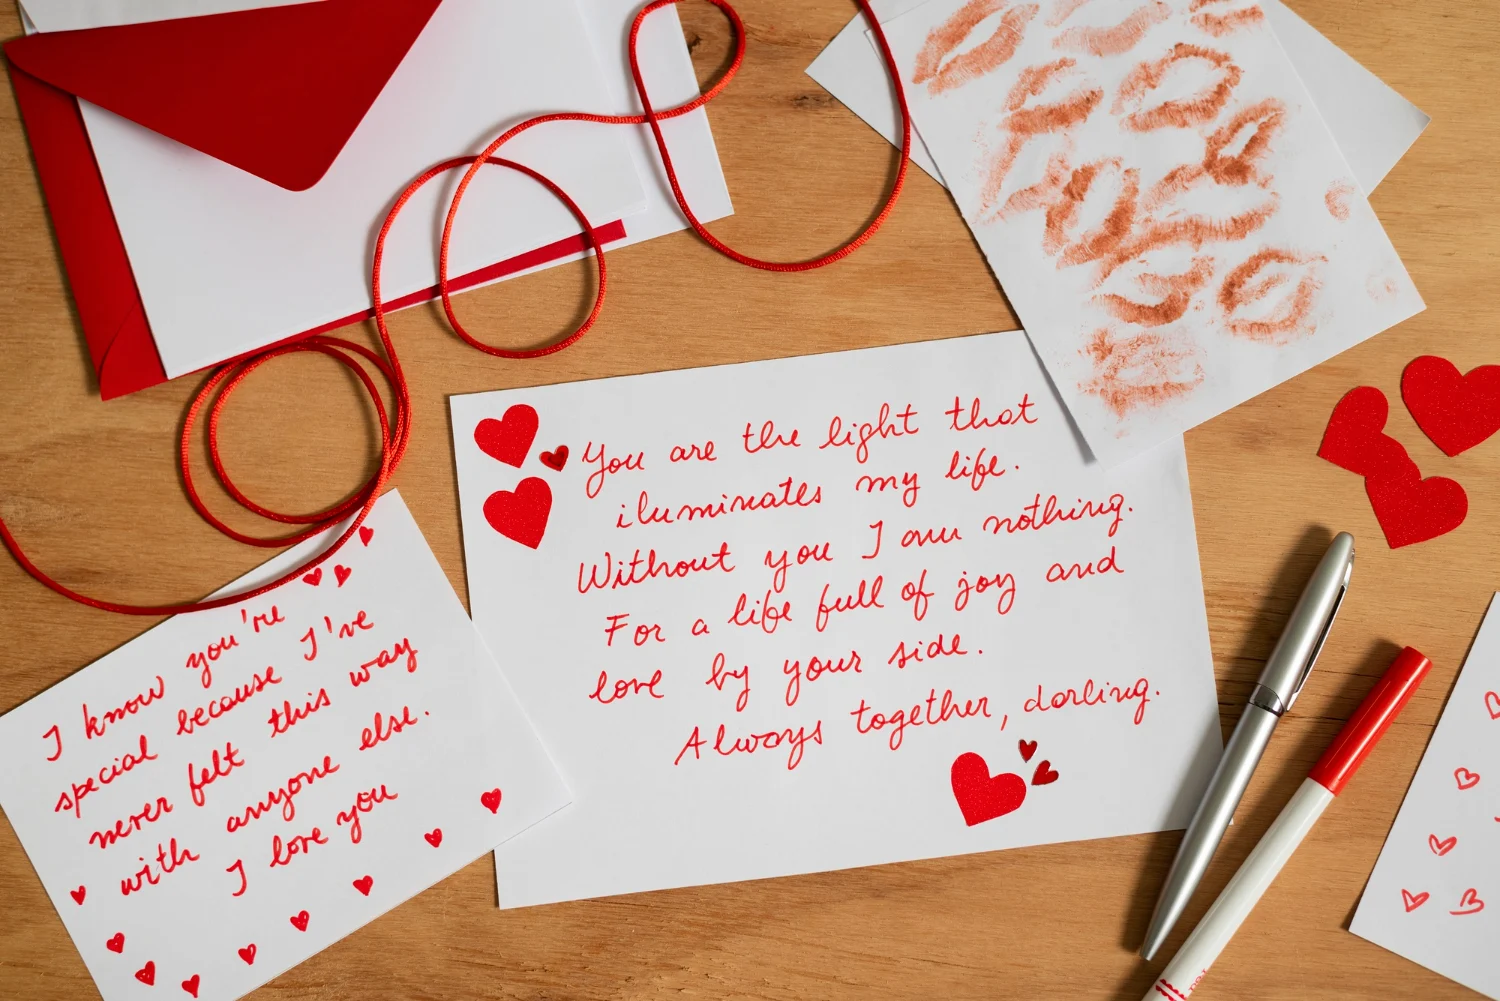 You are the light that
iluminates my life.
Without you I am nothing.
For a life full of joy and
love by your side.
Always together, darling.
I know you're
special because I've
never felt this way
with anyone else.
I love you